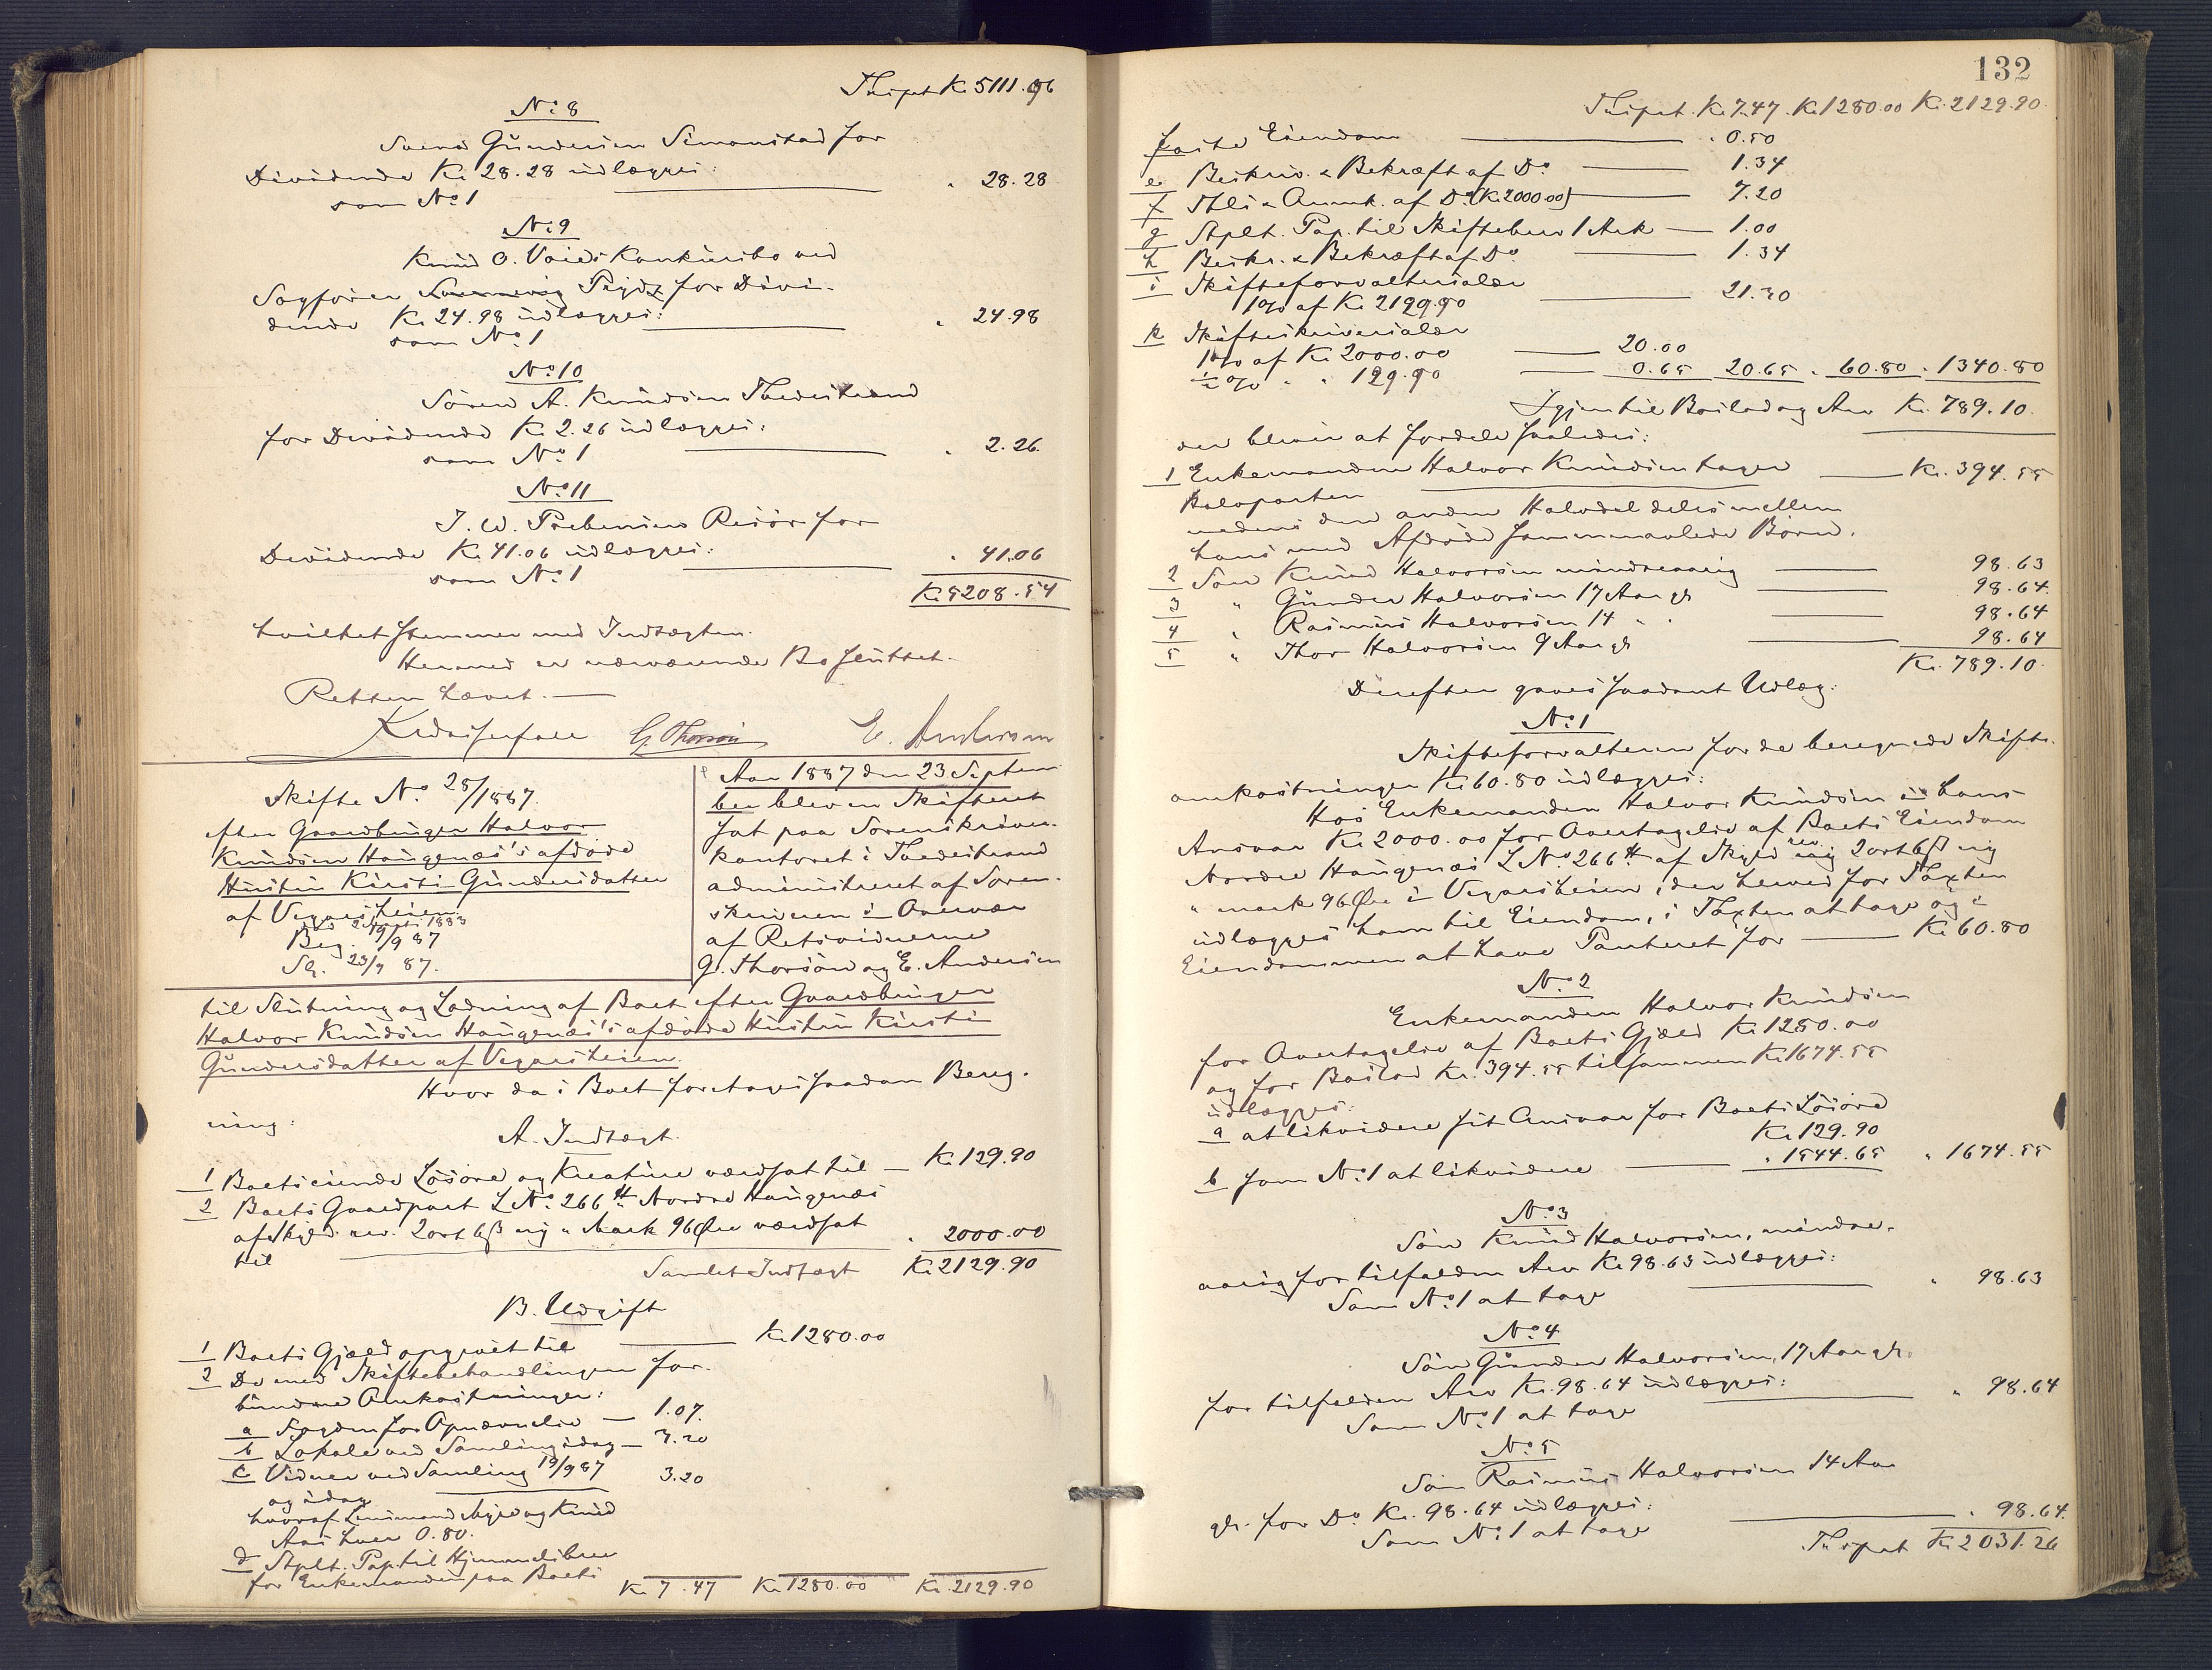 Transpt. Kr. 5111.96
No. 8
Svend Gundersen Simonstad for
Dividende Kr. 28.28 udlægges:
som No. 1 " 28.28
No. 9
Knud O. Voies Konkursbo ved
Sagfører for Divi-
dende Kr. 24.98 udlægges:
som No. 1 " 24.98
No. 10
Søren A. Knudsen Tvedestrand
for Dividende Kr. 2.26 udlægges:
som No. 1 " 2.26.
No. 11
J. W. Prebensen Risør for
Dividende Kr. 41.06 udlægges:
som No. 1 " 41.06
Kr. 5208.54
hvilket stemmer med Indtægten.
Hermed er nærværende Bo sluttet.
Retten hævet. —
G. Thorsøn E. Andersen
Skifte No. 28/1887.
efter Gaardbruger Halvor
Knudsen Haugenæs's afdøde
Hustru Kirsti Gundersdatter
af Vegarsheien.
Død 2 1883
Beg. 19/9 87
Sl. 23/9 87.
Aar 1887 den 23 Septem-
ber blev en Skifteret
sat paa Sorenskriver-
kontoret i Tvedestrand
administreret af Soren-
skriveren i Overvær
af Retsvidnerne
G. Thorsøn og E. Andersen
til Slutning og Lodning af Boet efter Gaardbruger
Halvor Knudsen Haugenæs's afdøde Hustru Kirsti
Gundersdatter af Vegarsheien.
Hvor da i Boet foretages saadan Bereg-
ning:
A. Indtægt.
1 Boets eiende Løsøre og Kreature værdsat til — Kr. 129.90
2 Boets Gaardpart L.No. 266 tt Nordre Haugenæs
af Skyld rev. 2 ort 6 ß ny " Mark 96 Øre værdsat
til " 2000.00
Samlet Indtægt Kr. 2129.90
B. Udgift
1 Boets Gjæld opgivet til Kr. 1280.00
2 De med Skiftebehandlingen for-
bundne Omkostninger:
a Fogden for Opnævnelse — 1.07.
b Lokale ved Samling idag — 3.20
c Vidner ved Samling 19/9 87
og idag 3.20
hvoraf Lensmand og Knud
Aas hver 0.80.
d Stplt. Pap. til Hjemmelsbrev
for Enkemanden paa Boets
Kr. 7.47 Kr. 1280.00 Kr. 2129.90
132
Transpt. Kr. 7.47. Kr. 1280.00 Kr. 2129.90.
faste Eiendom " 0.50
e Beskriv. & Bekræft af Do. 1.34
f Thl. & Anmk. af Do. (Kr. 2000.00) 7.20
g Stplt. Pap. til Skiftebrev 1 Ark — 1.00
h Beskr. & Bekræft af Do. 1.34
i Skifteforvaltersalær
1% af Kr. 2129.90 21.30
k Skifteskriversalær
1% af Kr. 2000.00 20.00
½% " " 129.90 0.65 20.65 " 60.80 " 1340.80
Igjen til Boslod og Arv Kr. 789.10.
der bliver at fordele saaledes:
1 Enkemanden Halvor Knudsen tager Kr. 394.55
Halvparten
medens den anden Halvdel deles mellem
hans med Afdøde sammenavlede Børn.
2 Søn Knud Halvorsen mindreaarig 98.63
3 " Gunder Halvorsen 17 Aar gl. 98.64.
4 " Rasmus Halvorsen 14 " " 98.64
5 " Thor Halvorsen 9 Aar gl. 98.64
Kr. 789.10.
Derefter gaves saadant Udlæg:
No. 1
Skifteforvalteren for de beregnede Skifte-
omkostninger Kr. 60.80 udlægges:
Hos Enkemanden Halvor Knudsen i hans
Ansvar Kr. 2000.00 for Overtagelse af Boets Eiendom
Nordre Haugenæs L.No. 266 tt af Skyld rev. 2 ort 6 ß ny
" mark 96 Øre i Vegarsheien, der herved for Taxten
udlægges ham til Eiendom, i Taxten at tage og i
Eiendommen at have Panteret for Kr. 60.80
No. 2
Enkemanden Halvor Knudsen
for Overtagelse af Boets Gjæld Kr. 1280.00
og for Boslod Kr. 394.55 tilsammen Kr. 1674.55
udlægges:
a at likvidere sit Ansvar for Boets Løsøre
Kr. 129.90
b som No. 1 at likvidere " 1544.65 " 1674.55
No. 3
Søn Knud Halvorsen, mindre-
aarig for tilfalden Arv Kr. 98.63 udlægges:
Som No. 1 at tage " 98.63
No. 4
Søn Gunder Halvorsen, 17 Aar gl.
for tilfalden Arv Kr. 98.64 udlægges:
Som No. 1 at tage " 98.64
No. 5
Søn Rasmus Halvorsen 14 Aar
gl. for Do. Kr. 98.64 udlægges:
Som No. 1 at tage " 98.64.
Transpt. Kr. 2031.26